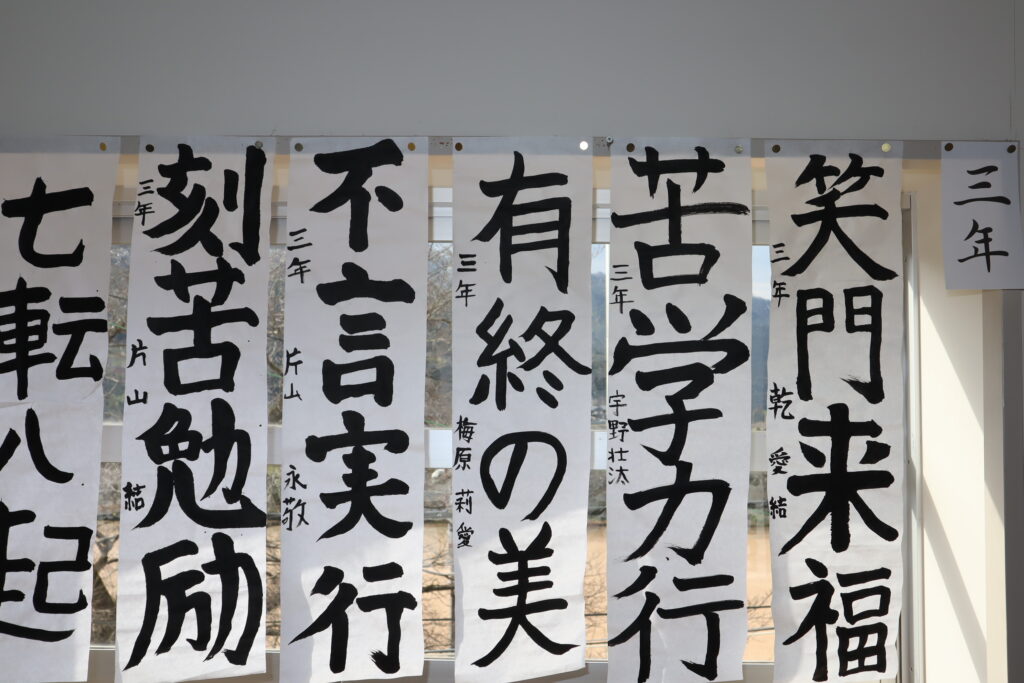 三年
笑門来福
三年 乾 愛結
苦学力行
三年 宇野壮汰
有終の美
三年 梅原 莉愛
不言実行
三年 片山 永敬
刻苦勉励
三年 片山 結
七転八起